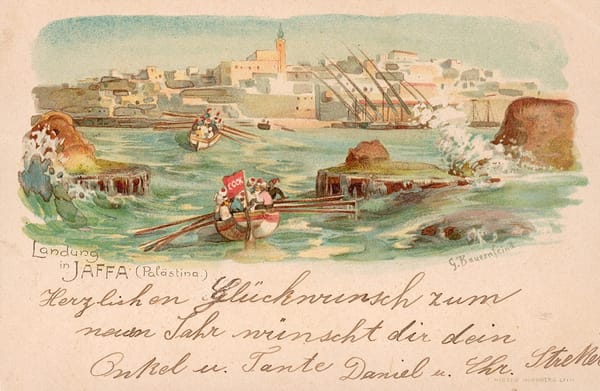 COOK
Landung
in JAFFA (Palästina.)
G. Bauernfeind
Herzlichen Glückwunsch zum
neuen Jahr wünscht dir dein
Onkel u. Tante Daniel u. Chr. Streker